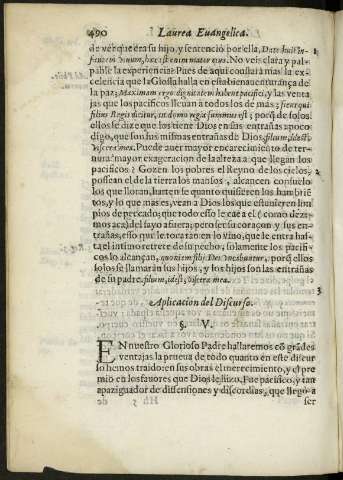 490 Laurea Euangelica.
de ver que era su hijo, y sentenciò por ella, Date huic in-
fantem viuum, hæc est enim mater eius. No veis clara y pal-
pable la experiencia? Pues de aqui constarà mas la ex-
celencia que la Glossa halla en esta bienauenturança de
la paz; Maximam ergo dignitatem habent pacifici, y las venta
jas que los pacificos lleuan a todos los de màs; sicut qui
filius Regis dicitur, in domo regia summus est; porq̃ de solos
ellos se dize que los tiene Dios en las entrañas a poco
digo, que son las mismas entrañas de Dios, filium, idest,
viscera mea. Puede auer mayor encarecimiento de ter-
nura? mayor exageracion de la alteza a que llegan los
pacificos? Gozen los pobres el Reyno de los cielos,
possean el de la tierra los mansos, alcancen consuelo
los que lloran, hartense quanto quisieren los hambriē
tos, y lo que mas es, vean a Dios los que estuuieren lim
pios de pecado; que todo esso le cae a el (como dezi-
mos acà) del sayo afuera; pero ser su coraçon y sus en-
trañas, esso que le toca tan en lo viuo, que le entra has-
ta el intimo retrete de su pecho, solamente los pacifi-
cos lo alcançan, quoniam filij Dei vocabuntur, porq̃ ellos
solos se llamaràn sus hijos, y los hijos son las entrañas
de su padre, filium, idest, viscera mea.
Aplicacion del Discurso.
§. V.
EN nuestro Glorioso Padre hallaremos cō grādes
ventajas la prueua de todo quanto en este discur
so hemos traido: en sus obras el merecimiento, y el pre
mio en los fauores que Dios le hizo. Fue pacifico, y tan
apaziguador de dissensiones y discordias, que llegò a
Hh 5 ser